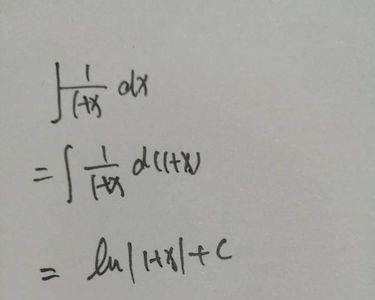 ∫ 1/(1+x) dx
= ∫ 1/(1+x) d(1+x)
= ln|1+x|+C